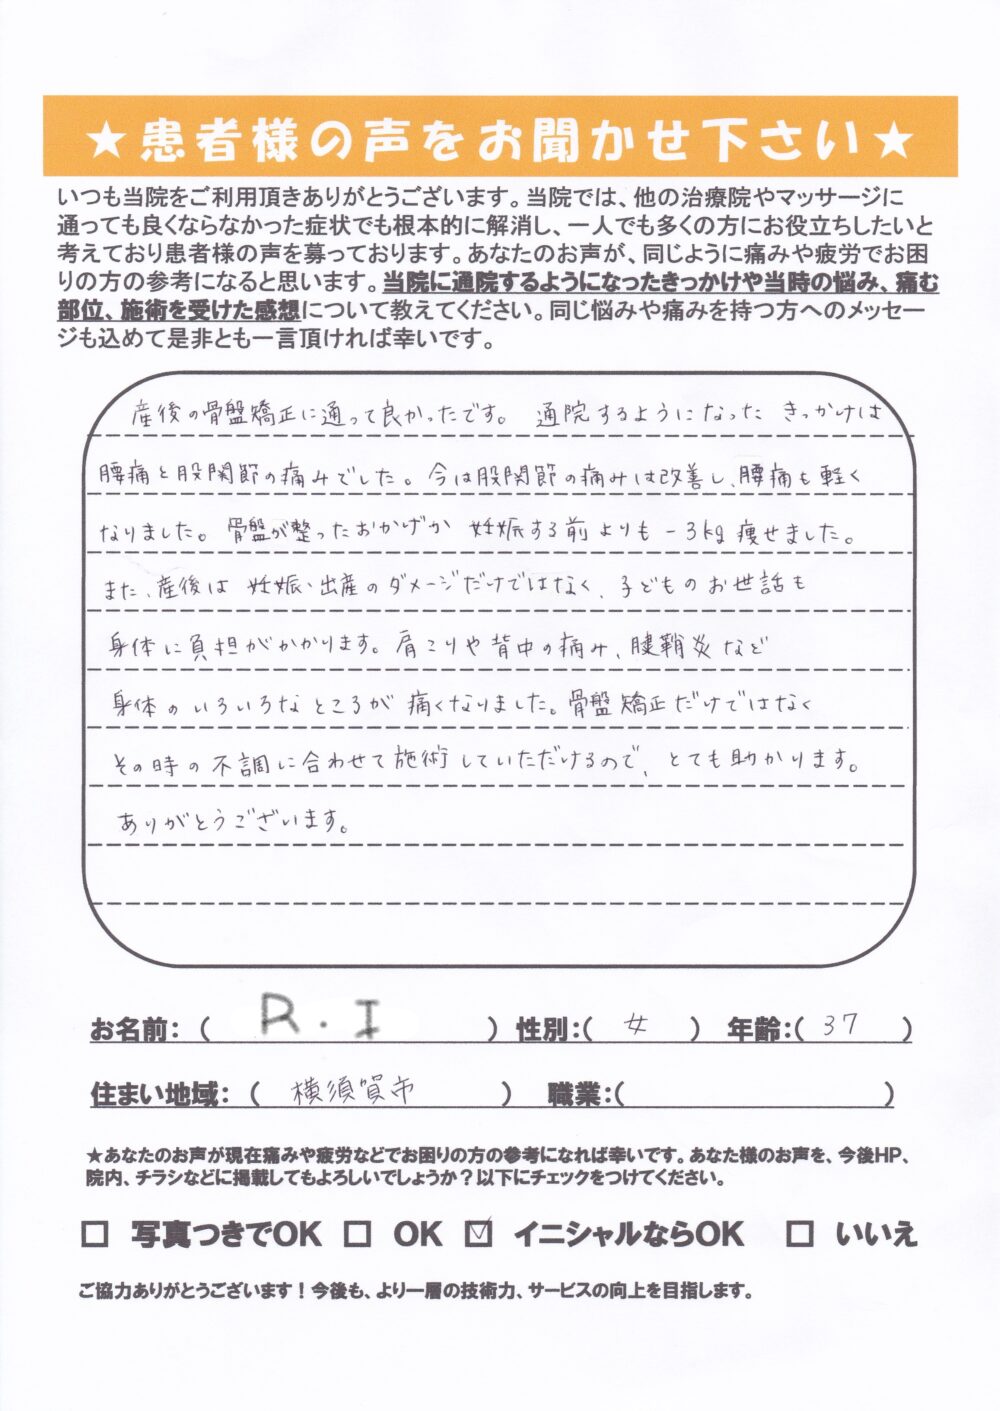 ★患者様の声をお聞かせ下さい★
いつも当院をご利用頂きありがとうございます。当院では、他の治療院やマッサージに
通っても良くならなかった症状でも根本的に解消し、一人でも多くの方にお役立ちしたいと
考えており患者様の声を募っております。あなたのお声が、同じように痛みや疲労でお困
りの方の参考になると思います。当院に通院するようになったきっかけや当時の悩み、痛む
部位、施術を受けた感想について教えてください。同じ悩みや痛みを持つ方へのメッセー
ジも込めて是非とも一言頂ければ幸いです。
産後の骨盤矯正に通って良かったです。 通院するようになった きっかけは
腰痛と股関節の痛みでした。今は股関節の痛みは改善し、腰痛も軽く
なりました。骨盤が整ったおかげか 妊娠する前よりも -3kg 痩せました。
また、産後は 妊娠・出産のダメージだけではなく、子どものお世話も
身体に負担がかかります。肩こりや背中の痛み、腱鞘炎など
身体のいろいろなところが痛くなりました。骨盤矯正だけではなく
その時の不調に合わせて施術していただけるので、とても助かります。
ありがとうございます。
お名前：（ R．I ） 性別：（ 女 ） 年齢：（ 37 ）
住まい地域：（ 横須賀市 ） 職業：（ ）
★あなたのお声が現在痛みや疲労などでお困りの方の参考になれば幸いです。あなた様のお声を、今後HP、
院内、チラシなどに掲載してもよろしいでしょうか？以下にチェックをつけてください。
□ 写真つきでOK □ OK ☑ イニシャルならOK □ いいえ
ご協力ありがとうございます！今後も、より一層の技術力、サービスの向上を目指します。